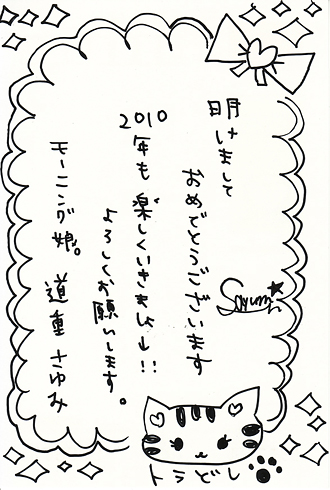 明けまして
おめでとうございます
Sayumi
2010
年も楽しくいきましょー!!
よろしくお願いします。
モーニング娘。
道重さゆみ
トラどし